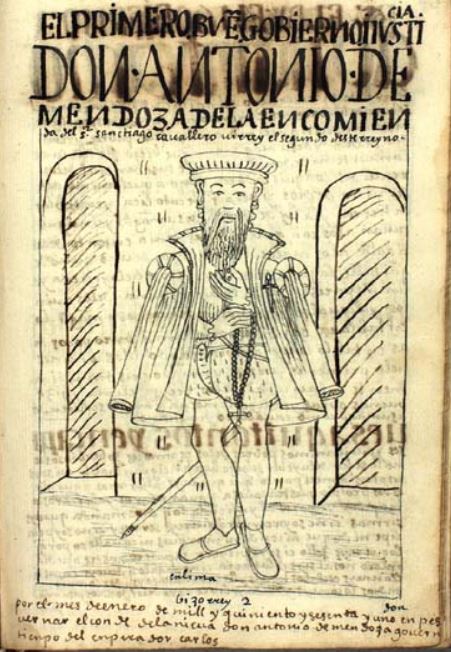 CIA.
EL PRIMERO BVĒ GOBIERNO I IVSTI
DON·ANTONIO·DE
MENDOZA DE LA ENCOMIEN
da del sr sanctiago cavallero virrey el segundo deste rreyno
en lima
bizorrey 2
don
por el mes de enero de mill y quiniento y sesenta y uno en
vernar el conde de la nieva don antonio de mendoza govern
tienpo del enprador carlos